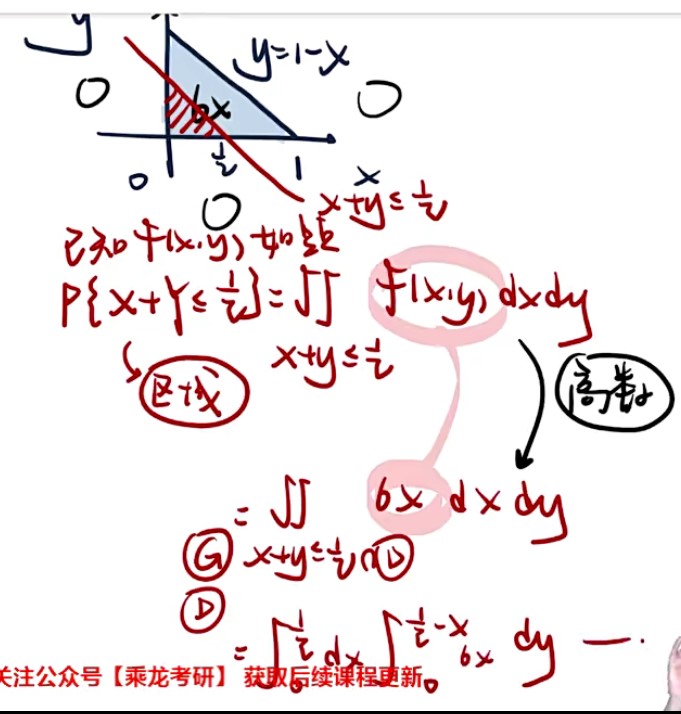 y
y=1-x
0
6x
0
1/2
1
0
x
0
x+y≤1/2
已知f(x,y)如题
P{X+Y≤1/2}=∬ f(x,y) dxdy
x+y≤1/2
区域
高数
=∬ 6x dxdy
G x+y≤1/2∩D
D
=∫₀^{1/2} dx ∫₀^{1/2-x} 6x dy —·
关注公众号【乘龙考研】 获取后续课程更新